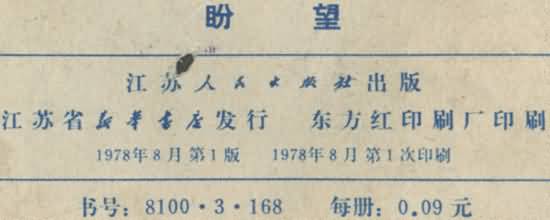 盼望
江苏人民出版社出版
江苏省新华书店发行 东方红印刷厂印刷
1978年8月第1版 1978年8月第1次印刷
书号：8100·3·168 每册：0.09元